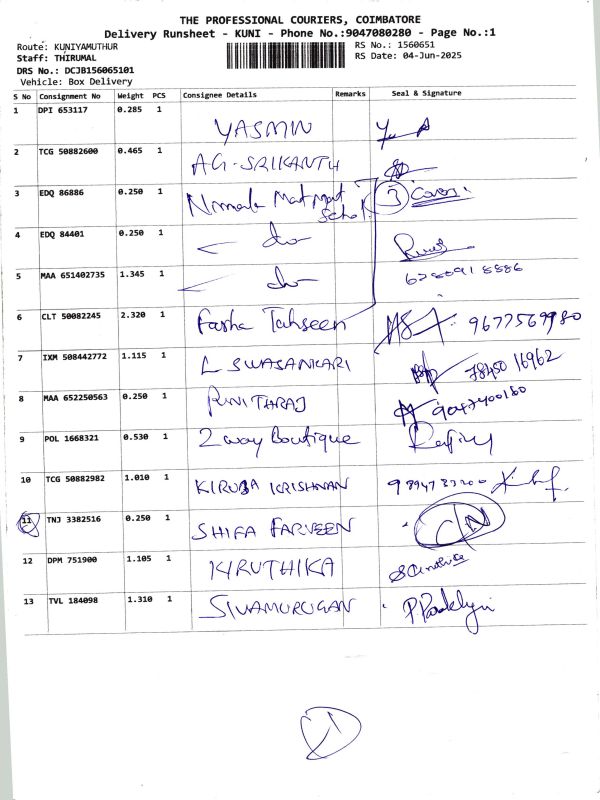 THE PROFESSIONAL COURIERS, COIMBATORE
Delivery Runsheet - KUNI - Phone No.:9047080280 - Page No.:1
Route: KUNIYAMUTHUR
Staff: THIRUMAL
DRS No.: DCJB156065101
Vehicle: Box Delivery
RS No.: 1560651
RS Date: 04-Jun-2025
S No Consignment No Weight PCS Consignee Details Remarks Seal & Signature
1 DPI 653117 0.285 1 YASMIN
2 TCG 50882600 0.465 1 AG-SRIKANTH
3 EDQ 86886 0.250 1 Nirmala Mat 3 Covers.
4 EDQ 84401 0.250 1 do
5 MAA 651402735 1.345 1 do
6 CLT 50082245 2.320 1 Fasha Tahseen
7 IXM 508442772 1.115 1 L SWASANKARI 78450 16962
8 MAA 652250563 0.250 1 PUNITHRAJ 9047400180
9 POL 1668321 0.530 1 2 way Boutique
10 TCG 50882982 1.010 1 KIRUBA KRISHNAN
11 TNJ 3382516 0.250 1 SHIFA FARVEEN C/N
12 DPM 751900 1.105 1 KIRUTHIKA
13 TVL 184098 1.310 1 SIVAMURUGAN